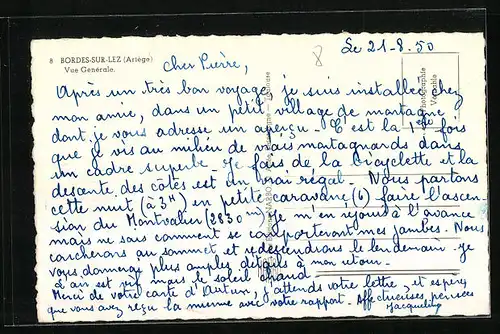 8 BORDES-SUR-LEZ (Ariège)
Vue Générale.
8
Le 21-8.50
Cher Pierre,
Après un très bon voyage, je suis installée chez
mon amie, dans un petit village de montagne
dont je vous adresse un aperçu. C'est la 1ère fois
que je vis au milieu de vrais montagnards dans
un cadre superbe. Je fais de la bicyclette et la
desante des côtes est un vrai régal. Nous partons
cette nuit (à 3H) en petite caravane (6) faire l'ascen-
sion du Montvalier (2830 m) je m'en réjouis à l'avance
mais ne sais comment se comporteront mes jambes. Nous
coucherons au sommet et redescendrons le lendemain. Je
vous donnerai plus amples détails à mon retour.
L'air est vif mais le soleil chaud.
Merci de votre carte d' j'attends votre lettre, et espère
que vous avez reçu la mienne avec votre rapport. Affectueuses pensées
Jacqueline
Photographie
Véritable